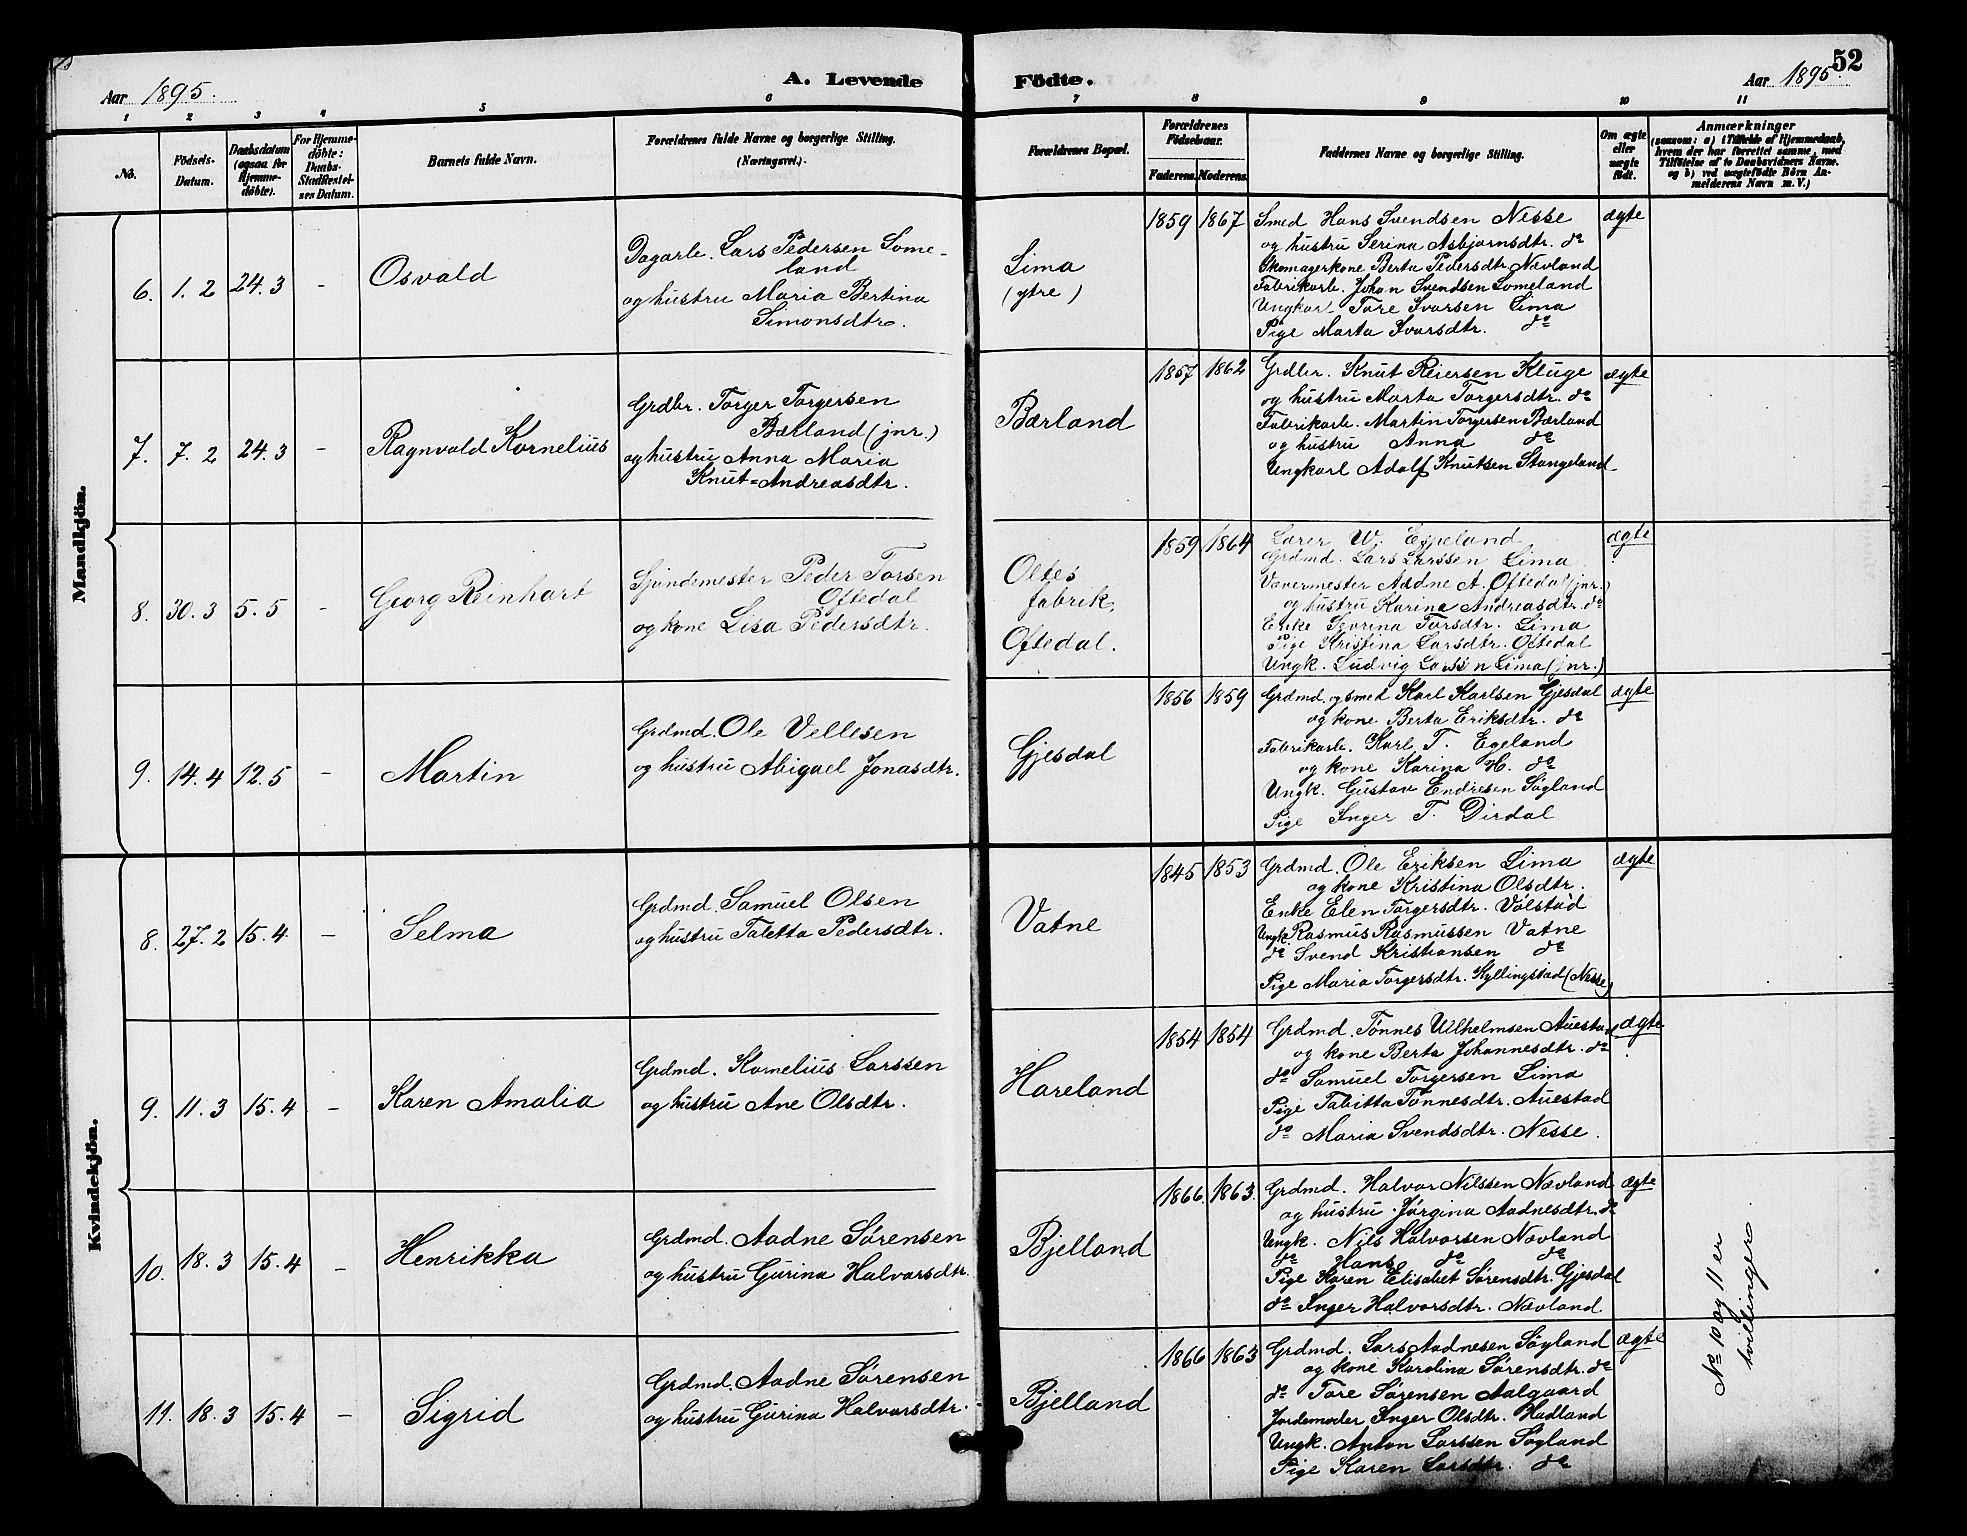 A. Levende Födte.
52
Aar 1895.
Aar 1895.
1 2 3 4 5 6 7 8 9 10 11
No.
Födsels-
Datum.
Daabsdatum
(ogsaa for
Hjemme-
döbte).
For Hjemme-
döbte:
Daabs-
Stadfæstel-
ses Datum.
Barnets fulde Navn.
Forældrenes fulde Navne og borgerlige Stilling.
(Næringsvei.)
Forældrenes Bopæl.
Forældrenes
Födselsaar.
Faderens. Moderens.
Faddernes Navne og borgerlige Stilling.
Om ægte
eller
uægte
födt.
Anmærkninger
(saasom: a) i Tilfælde af Hjemmedaab,
hvem der har forrettet samme, med
Tilföielse af to Daabsvidners Navne.
og b) ved uægtefödte Börn An-
melderens Navn m. V.)
Mandkjön.
6. 1. 2 24. 3 - Osvald
Dagarb. Lars Pedersen Some-
land
og hustru Maria Bertina
Simonsdtr.
Lima
(ytre)
1859 1867
Smed Hans Svendsen Nesse
og hustru Serina Asbjørnsdtr. do
Skomagerkone Berta Pedersdtr. Nævland
Fabrikarb. Johan Svendsen Someland
Ungkarl Tore Ivarsen Lima
Pige Marta Ivarsdtr. do
ægte
7. 7. 2 24. 3 - Ragnvald Kornelius
Grdbr. Torger Torgersen
Bærland (jnr.)
og hustru Anna Maria
Knut=Andreasdtr.
Bærland
1857 1862
Grdbr. Knut Reiersen Kluge
og hustru Marta Torgersdtr. do
Fabrikarb. Martin Torgersen Bærland
og hustru Anna do
Ungkarl Adolf Knutsen Stangeland
ægte
8. 30. 3 5. 5 - Georg Reinhart
Spindemester Peder Torsen
Oftedal
og kone Lisa Pedersdtr.
Oltes
fabrik,
Oftedal.
1859 1864
Lærer W. Espeland
Grdmd. Lars Larssen Lima
Vævermester Adne A. Oftedal (jnr.)
og hustru Karina Andreasdtr. do
Enke Severina Torsdtr. Lima
Pige Kristina Larsdtr. Oftedal
Ungk. Ludvig Larssen Lima (jnr.)
ægte
9. 14. 4 12. 5 - Martin
Grdmd. Ole Vellesen
og hustru Abigael Jonasdtr.
Gjesdal
1856 1859
Grdmd. og smed Karl Karlsen Gjesdal
og kone Berta Eriksdtr. do
Fabrikarb. Karl T. Egeland
og kone Karina H. do
Ungk. Gustav Endresen Søyland
Pige Inger T. Dirdal
ægte
Kvindekjön.
8. 27. 2 15. 4 - Selma
Grdmd. Samuel Olsen
og hustru Taletta Pedersdtr.
Vatne
1845 1853
Grdmd. Ole Eriksen Lima
og kone Kristina Olsdtr.
Enke Elen Torgersdtr. Vølstad
Ungk. Rasmus Rasmussen Vatne
do Svend Kristiansen do
Pige Maria Torgersdtr. Kyllingstad (Nesse)
ægte
9. 11. 3 15. 4 - Karen Amalia
Grdmd. Kornelius Larssen
og hustru Ane Olsdtr.
Hareland
1854 1854
Grdmd. Tønnes Vilhelmsen Auestad
og kone Berta Johannesdtr. do
do Samuel Torgersen Lima
Pige Tabitta Tønnesdtr. Auestad
do Maria Svendsdtr. Nesse.
ægte
10. 18. 3 15. 4 - Henrikka
Grdmd. Aadne Sørensen
og hustru Gurina Halvorsdtr.
Bjelland
1866. 1863.
Grdmd. Halvor Nilssen Nævland
og hustru Jørgina Aadnesdtr. do
Ungk. Nils Halvorsen Nævland
do Hans do do
Pige Karen Elisabet Sørensdtr. Gjesdal
do Inger Halvorsdtr. Nævland
ægte
No 10 og 11 er
tvillinger.
11. 18. 3 15. 4 - Sigrid
Grdmd. Aadne Sørensen
og hustru Gurina Halvorsdtr.
Bjelland
1866 1863
Grdmd. Lars Aadnesen Søyland
og kone Karolina Sørensdtr. do
do Tore Sørensen Aalgaard
Jordemoder Inger Olsdtr. Hadland
Ungk. Anton Larssen Søyland
Pige Karen Larsdtr. do
ægte